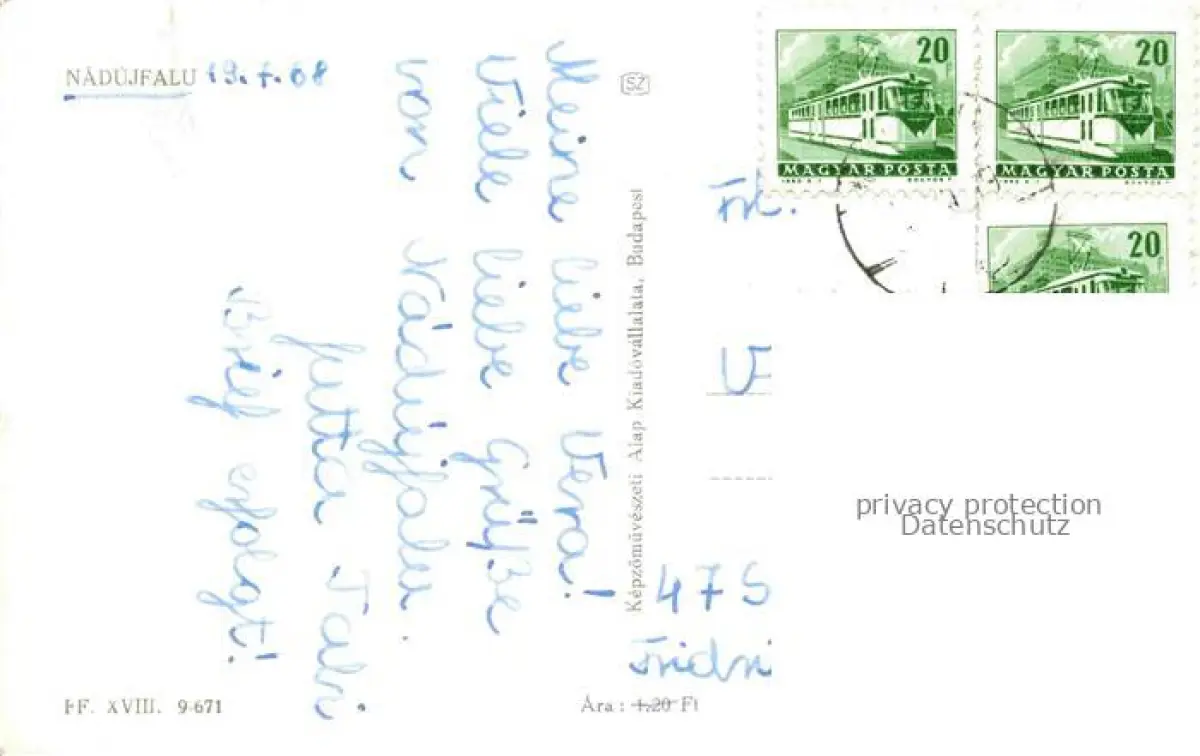 NÁDÚJFALU 19.7.68
Meine liebe Vera!
Viele liebe Grüße
von Nádújfalu.
Jutta
Brief erfolgt!
SZ
Képzőművészeti Alap Kiadóvállalata, Budapest
20
MAGYAR POSTA
20
MAGYAR POSTA
20
Frl.
V
475
privacy protection
Datenschutz
FF. XVIII. 9-671
Ára: 1,20 Ft